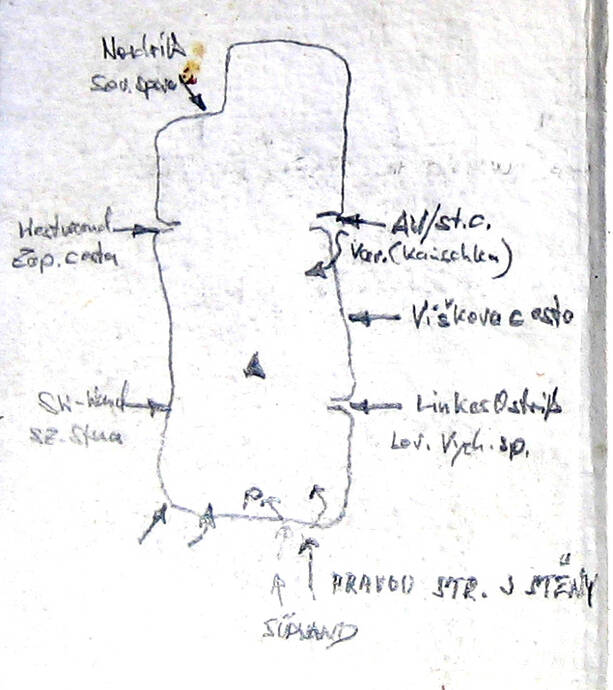 Nordriß
Sev. spára
Westwand
Záp. cesta
AW/st.c.
Var. (Kauschka)
Víškova cesta
SW-Wand
sz. stěna
Linkes Ostriß
Lev. Vých. sp.
P
PRAVOU STR. J STĚNY
SÜDWAND